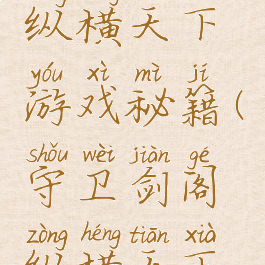 纵横天下
yóu xì mì jí
游戏秘籍(
shǒu wèi jiàn gé
守卫剑阁
zòng héng tiān xià